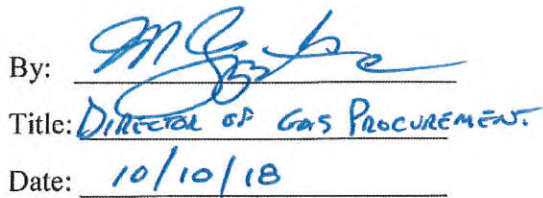 By:
Title: DIRECTOR OF GAS PROCUREMENT.
Date: 10/10/18